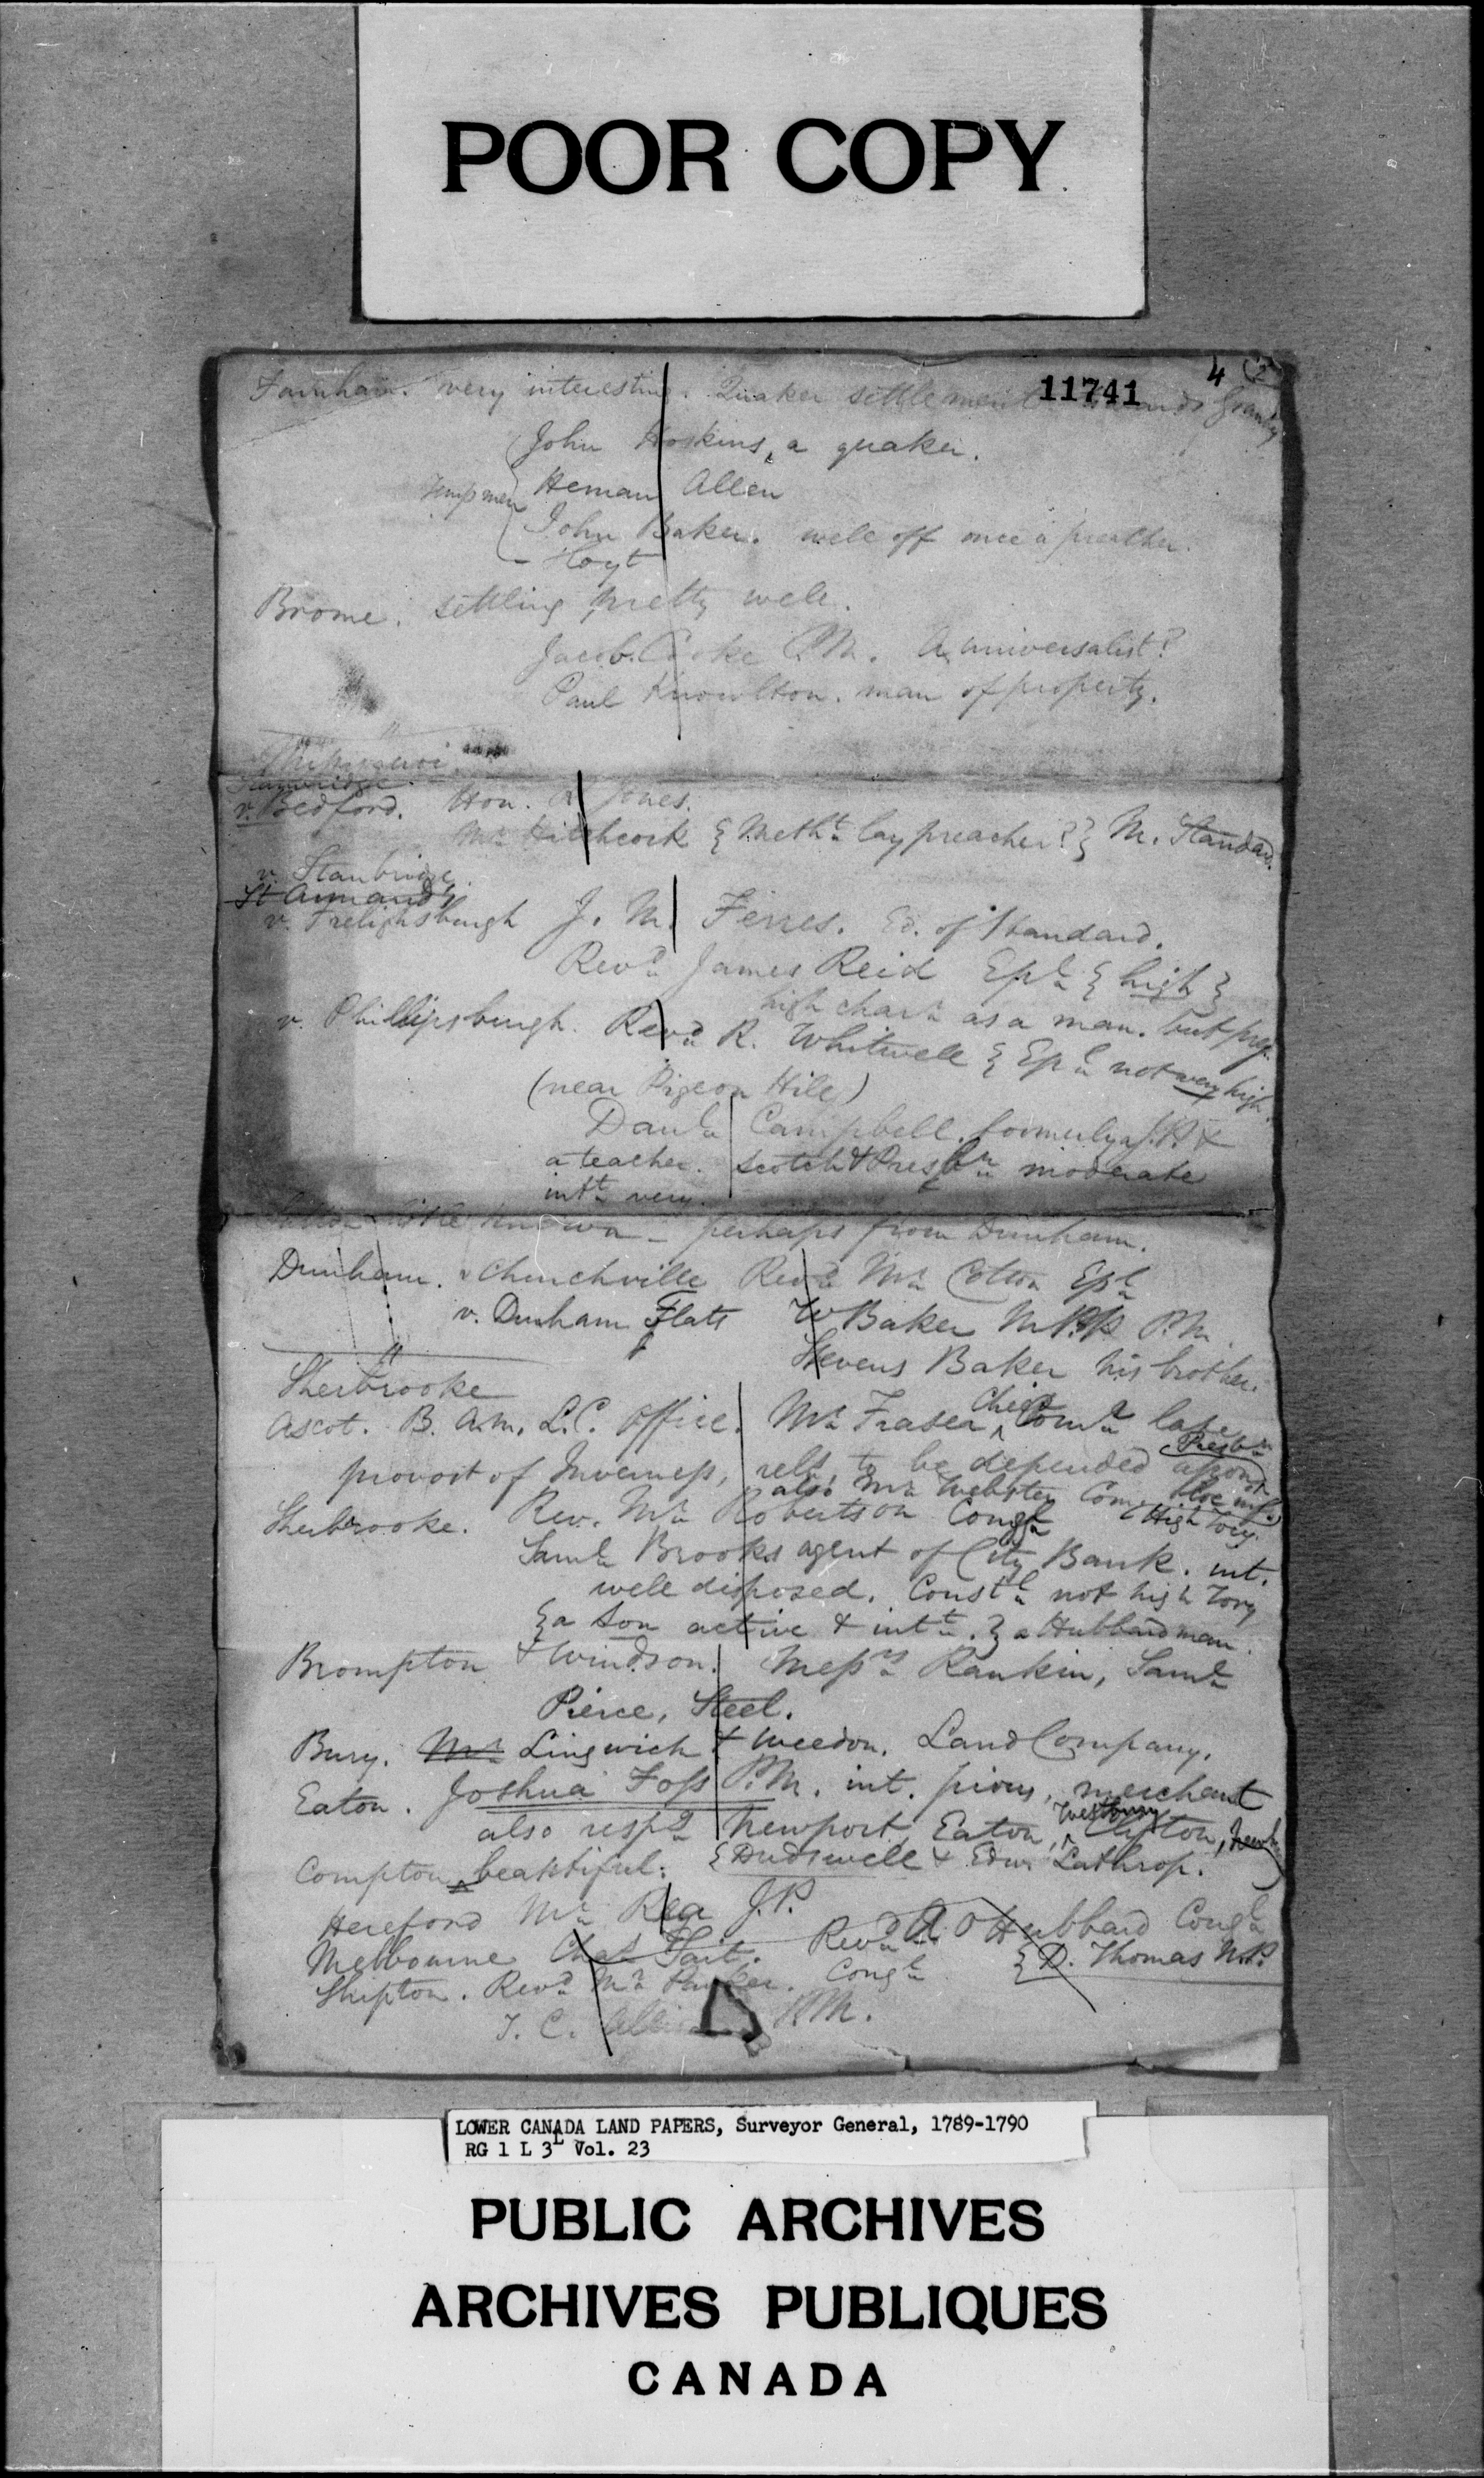 POOR COPY
4
11741
Farnham. very interesting. Quaker settlement Granby
John Hoskins, a quaker.
Temp men Heman Allen
John Baker. well off once a preacher.
- Hoyt
Brome. settling pretty well.
Jacob Cooke P.M. A universalist?
Paul Knowlton. man of property.
"
Stanbridge.
v. Bedford. Hon. R Jones.
Mr Hitchcock { Metht lay preacher? } M. Standard.
v. Stanbridge
St Armand
v. Frelighsburgh J. M. Ferres. Ed. of Standard.
Revd James Reid Epl { high }
high charr as a man. but prej.
v. Phillipsburgh. Revd R. Whitwell { Epl not very high.
(near Pigeon Hill)
Danl Campbell. formerly a J.P. &
a teacher. Scotch & Presbn moderate
intt very.
Sutton little known - perhaps from Dunham.
Dunham. v Churchville Revd Mr Cotton Epl
v. Dunham Flats W Baker M.P.P. P.M.
Stevens Baker his brother.
"
Sherbrooke
Ascot. B. Am. L.C. Office. Mr Fraser, Chief Comr late
provost of Inverness, rels, to be depended upon Presbn
also Mr Webster Com.
High Tory.
Sherbrooke. Rev. Mr Robertson Congl
Saml Brooks agent of City Bank. int.
well disposed. Constl not high Tory
{ a son active & intt. } a Hubbard man.
Brompton & Windsor. Messrs Rankin, Saml
Pierce, Steel.
Bury. Mr Lingwick & Weedon. Land Company.
Eaton. Joshua Foss P.M. int. pious, merchant
also respg Newport, Eaton, Westbury Clifton,
Compton beautiful: { Dudswell & Edw. Lathrop.
Hereford Mr Rea J.P.
Melbourne Chas Tait. Revd A O Hubbard Congl
{ D. Thomas N.P.
Shipton. Revd Mr Parker. Congl
T. C. P.M.
LOWER CANADA LAND PAPERS, Surveyor General, 1789-1790
RG 1 L 3L Vol. 23
PUBLIC ARCHIVES
ARCHIVES PUBLIQUES
CANADA